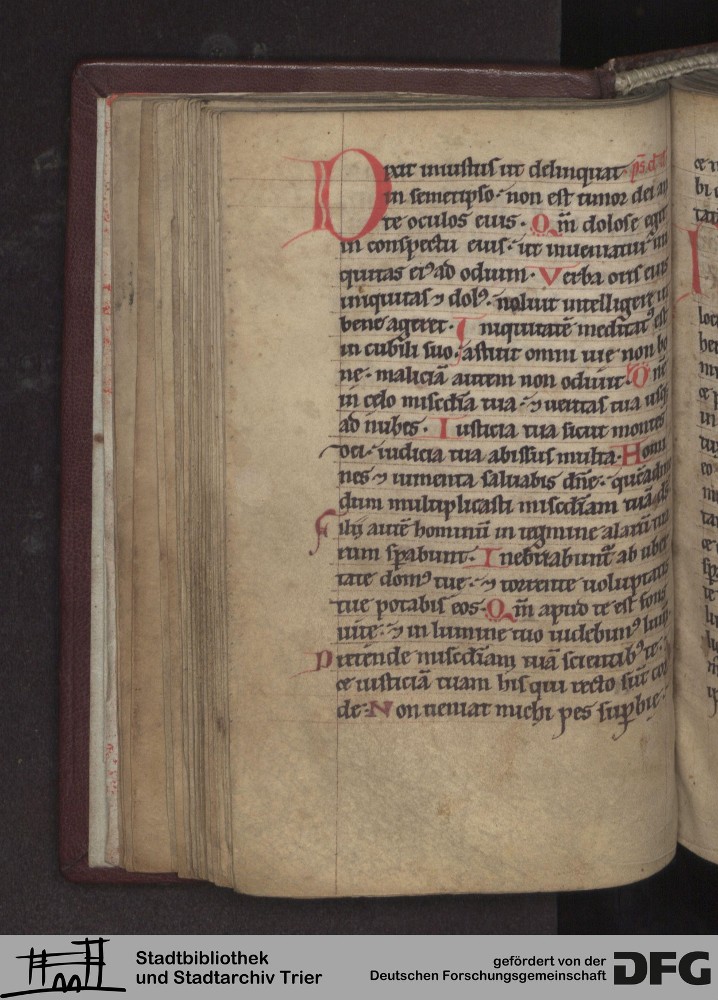 Dixit iniustus ut delinquat. ps. dd
in semetipso. non est timor dei an
te oculos eius. Qm̄ dolose egit
in conspectu eius. ut inueniatur ini
quitas ei⁹ ad odium. Verba oris eius
iniquitas ⁊ dol⁹. noluit intelligere ut
bene ageret. Iniquitatē meditat⁹ est
in cubili suo. astitit omni uie non bo
ne. maliciā autem non odiuit. Dn̄e
in celo misc̄dia tua. ⁊ ueritas tua usq;
ad nubes. Iusticia tua sicut montes
dei. iudicia tua abissus multa. Homi
nes ⁊ iumenta saluabis dn̄e. quēadmo
dum multiplicasti misc̄diam tuā ds̄
Filij autē hominū in tegmine alarū tua
rum sꝑabunt. Inebriabunt̄ ab uber
tate dom⁹ tue. ⁊ torrente uoluptatis
tue potabis eos. Qm̄ apud te est fons
uite. ⁊ in lumine tuo uidebim⁹ lum̄
Pretende misc̄diam tuā scientib⁹ te.
ce iusticiā tuam his qui recto sūt cor
de. Non ueniat michi pes suꝑbie.
Stadtbibliothek
und Stadtarchiv Trier
gefördert von der
Deutschen Forschungsgemeinschaft
DFG